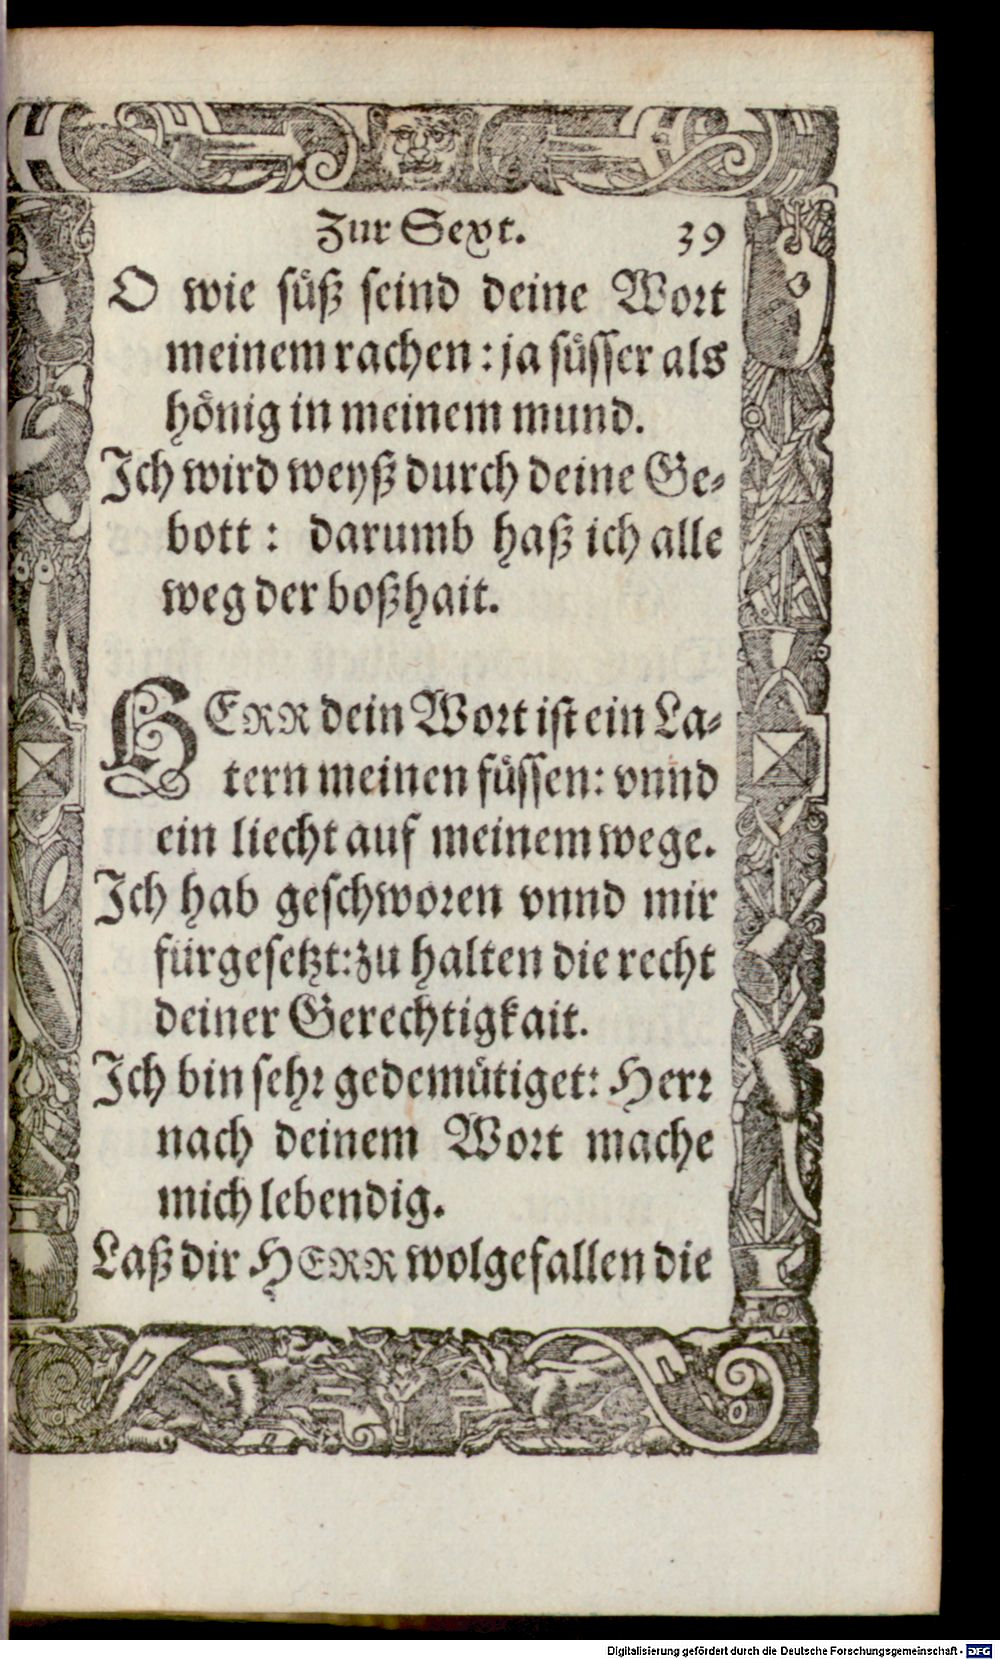 Zur Sext. 39
O wie süß seind deine Wort
meinem rachen: ja süsser als
hönig in meinem mund.
Ich wird weyß durch deine Ge-
bott: darumb haß ich alle
weg der boßhait.
HERR dein Wort ist ein La-
tern meinen füssen: vnnd
ein liecht auf meinem wege.
Ich hab geschworen vnnd mir
fürgesetzt: zu halten die recht
deiner Gerechtigkait.
Ich bin sehr gedemütiget: Herr
nach deinem Wort mache
mich lebendig.
Laß dir HERR wolgefallen die
Digitalisierung gefördert durch die Deutsche Forschungsgemeinschaft - DFG